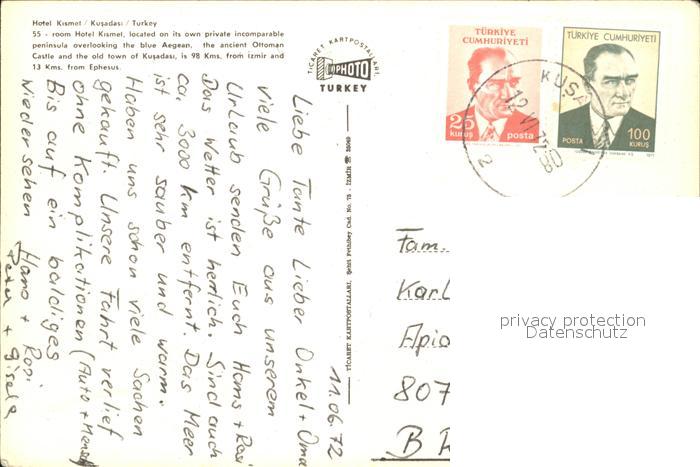 Hotel Kismet / Kuşadası / Turkey
55 - room Hotel Kismet, located on its own private incomparable
peninsula overlooking the blue Aegean, the ancient Ottoman
Castle and the old town of Kuşadası, is 98 Kms. from izmir and
13 Kms. from Ephesus.
TİCARET KARTPOSTALLARI,
PHOTO
TURKEY
TÜRKİYE
CUMHURİYETİ
25
kuruş
posta
TÜRKİYE CUMHURİYETİ
POSTA
100
KURUŞ
1971
KUŞA
12 VI 72
TİCARET KARTPOSTALLARI, Şehit Fethibey Cad. No. 75 - İZMİR
11.06.72
Liebe Tante Lieber Onkel + Oma
viele Grüße aus unserem
Urlaub senden Euch Hans + Rosi
Das Wetter ist herrlich. Sind auch
ca. 3000 km entfernt. Das Meer
ist sehr sauber und warm.
Haben uns schon viele Sachen
gekauft. Unsere Fahrt verlief
ohne Komplikationen (Auto + Mensch
Bis auf ein baldiges
Wiedersehen Hans + Rosi
Peter + Gisela
Fam.
Karl
Apia
807
privacy protection
Datenschutz